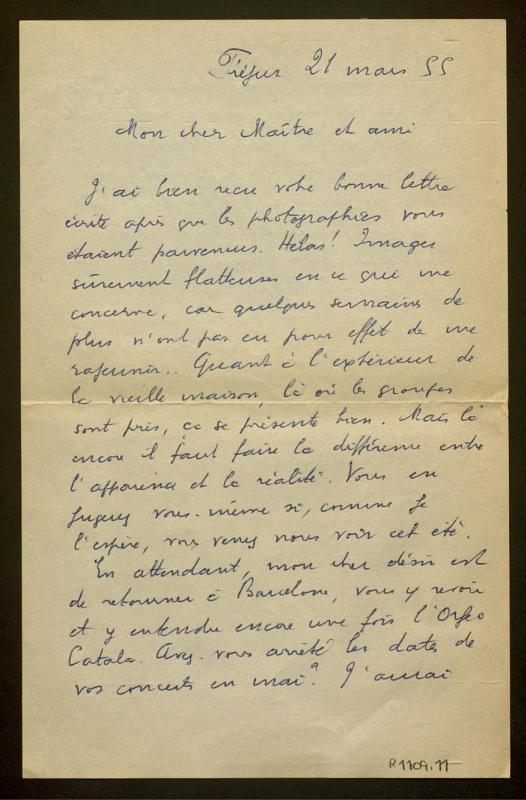 Fréjus 21 mars 55
Mon cher Maître et ami
J'ai bien reçu votre bonne lettre
écrite après que les photographies vous
étaient parvenues. Hélas! Images
sûrement flatteuses en ce qui me
concerne, car quelques semaines de
plus n'ont pas eu pour effet de me
rajeunir.. Quant à l'extérieur de
la vieille maison, là où les groupes
sont pris, ça se présente bien. Mais là
encore il faut faire la différence entre
l'apparence et la réalité. Vous en
jugerez vous-même si, comme je
l'espère, vous venez nous voir cet été.
En attendant, mon cher désir est
de retourner à Barcelone, vous y revoir
et y entendre encore une fois l'Orfeo
Catala. Avez-vous arrêté les dates de
vos concerts en mai? J'aurai
R1109.11